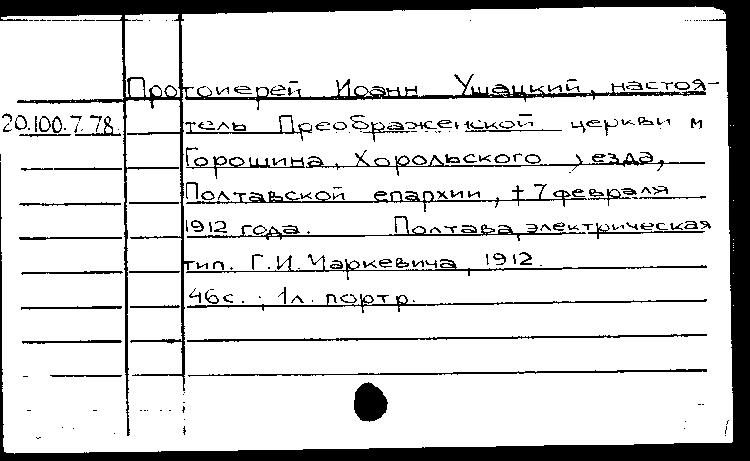 Протоиерей Иоанн Ушацкий, настоя-
20.100.7.78. тель Преображенской церкви м
Горошина, Хорольского уезда,
Полтавской епархии, † 7 февраля
1912 года. Полтава, электрическая
тип. Г.И. Маркевича, 1912.
46с.; 1л. портр.